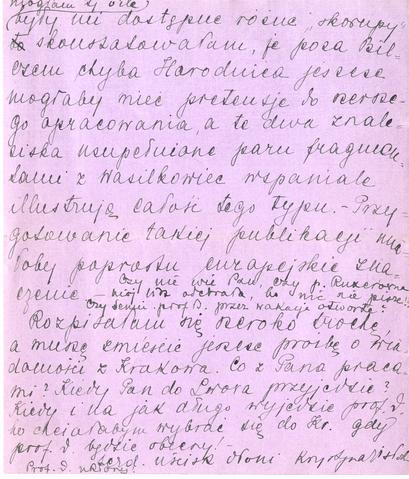 mogłam tj. ...
były mi dostępne różne "skorupy"
to skonstatowałam, że poza Bil-
czem chyba Horodnica jeszcze
mogłaby mieć pretensję do szersze-
go opracowania, a te dwa znale-
ziska uzupełnione paru fragmen-
tami z Wasilkowiec wspaniale
illustrują całość tego typu. - Przy-
gotowanie takiej publikacji mia-
łoby poprostu europejskie zna-
czenie.
Czy nie wie Pan, czy p.
mój list odebrała, bo nic nie pisze?
Czy semin. prof. J. przez wakacje otwarte?
Rozpisałam się szeroko trochę,
a muszę zmieścić jeszcze prośbę o wia-
domości z Krakowa. Co z Pana praca-
mi? Kiedy Pan do Lwowa przyjedzie?
Kiedy i na jak długo wyjedzie prof. J.
bo chciałabym wybrać się do Kr. gdy
prof. J. będzie obecny! -
serd. uścisk dłoni Krystyna
Prof. J.